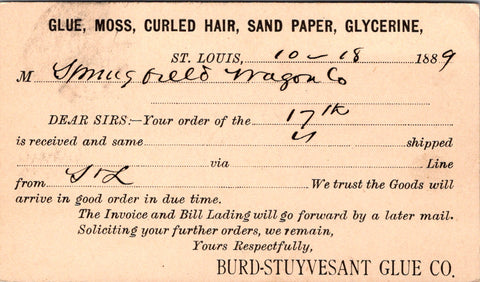 GLUE, MOSS, CURLED HAIR, SAND PAPER, GLYCERINE,
ST. LOUIS, 10-18 1889
M Springfield Wagon Co
DEAR SIRS:—Your order of the 17th
is received and same is shipped
via Line
from StL We trust the Goods will
arrive in good order in due time.
The Invoice and Bill Lading will go forward by a later mail.
Soliciting your further orders, we remain,
Yours Respectfully,
BURD-STUYVESANT GLUE CO.